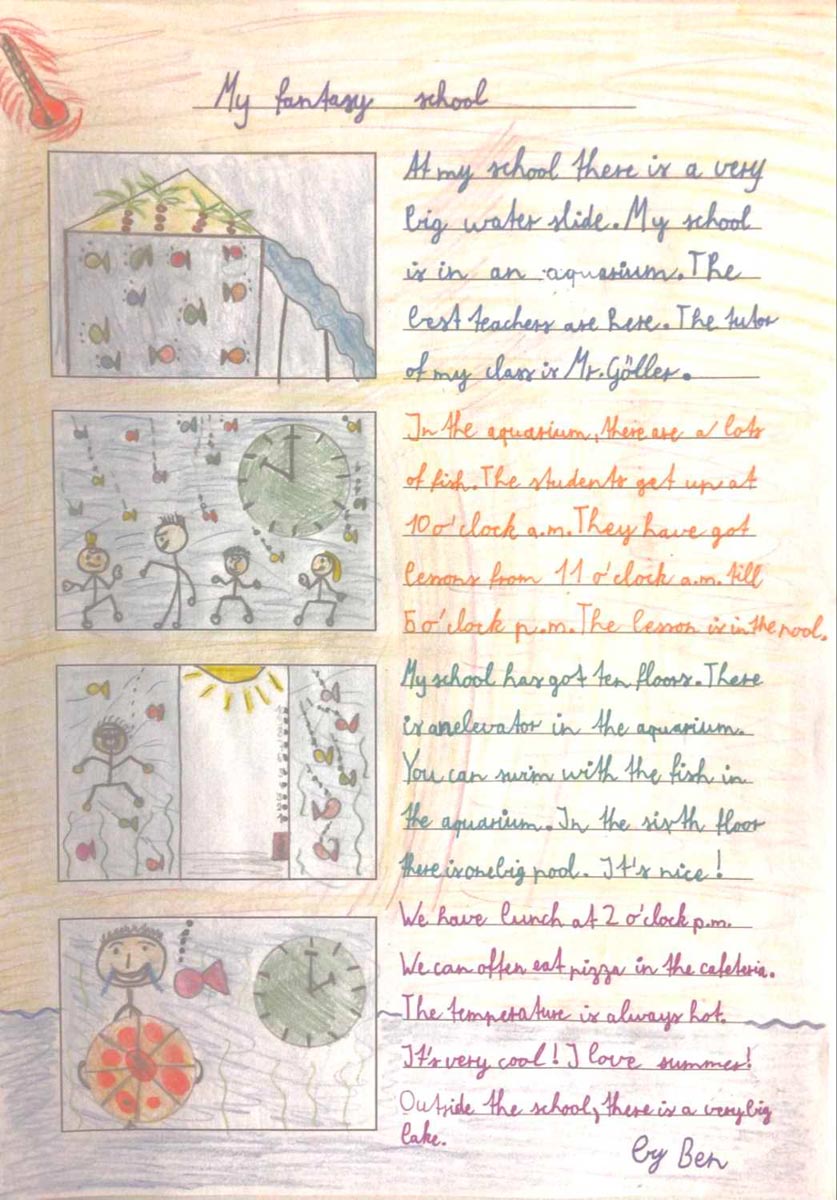 My fantasy school
At my school there is a very
big water slide. My school
is in an aquarium. The
best teachers are here. The tutor
of my class is Mr. Göller.
In the aquarium, there are a lots
of fish. The students get up at
10 o'clock a.m. They have got
lessons from 11 o'clock a.m. till
5 o'clock p.m. The lesson is in the pool.
My school has got ten floors. There
is an elevator in the aquarium.
You can swim with the fish in
the aquarium. In the sixth floor
there is one big pool. It's nice!
We have lunch at 2 o'clock p.m.
We can often eat pizza in the cafeteria.
The temperature is always hot.
It's very cool! I love summer!
Outside the school, there is a very big
lake.
by Ben